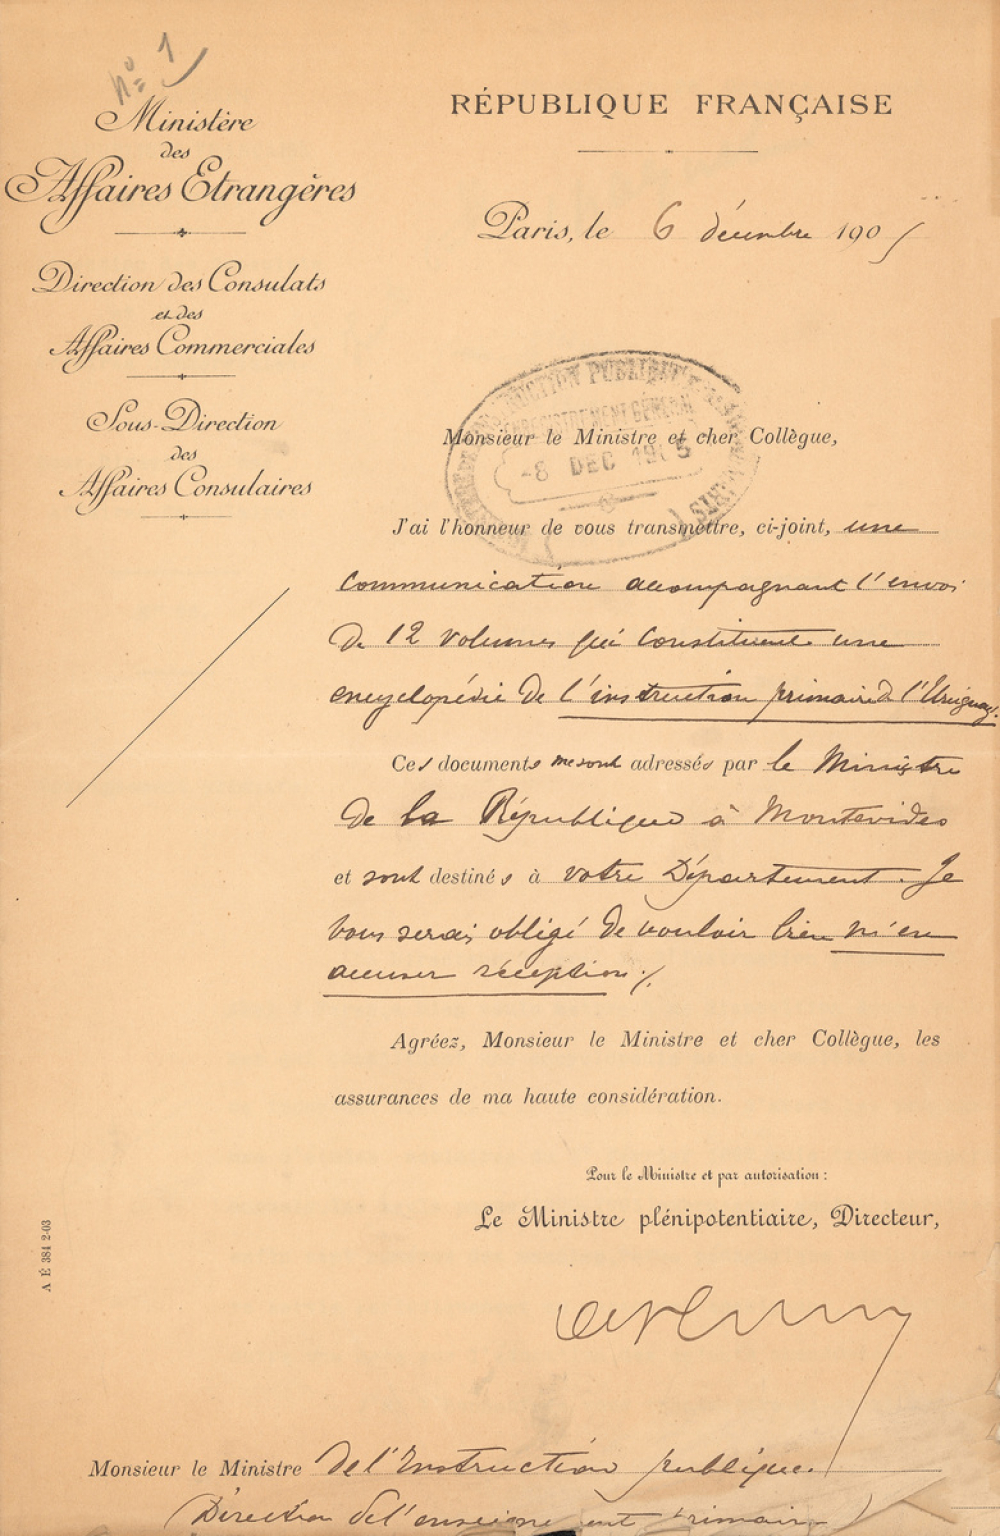 Nº 1
Ministère
des
Affaires Etrangères
Direction des Consulats
et des
Affaires Commerciales
Sous-Direction
des
Affaires Consulaires
RÉPUBLIQUE FRANÇAISE
Paris, le 6 décembre 1905
INSTRUCTION PUBLIQUE
ENREGISTREMENT GÉNÉRAL
-8 DEC 1905
Monsieur le Ministre et cher Collègue,
J'ai l'honneur de vous transmettre, ci-joint, une
communication accompagnant l'envoi
de 12 volumes qui constituent une
encyclopédie de l'instruction primaire de l'Uruguay.
Ces documents me sont adressés par le Ministre
de la République à Montevideo
et sont destinés à votre Département. Je
vous serais obligé de vouloir bien m'en
accuser réception ./.
Agréez, Monsieur le Ministre et cher Collègue, les
assurances de ma haute considération.
Pour le Ministre et par autorisation :
Le Ministre plénipotentiaire, Directeur,
A É 384 2-03
Monsieur le Ministre de l'Instruction publique.
(Direction de l'enseignement primaire)